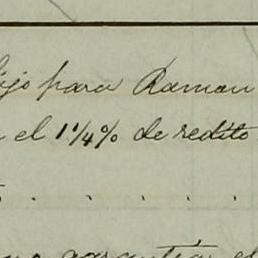 para Ramon
el 1 1/4% de redito
garantía el